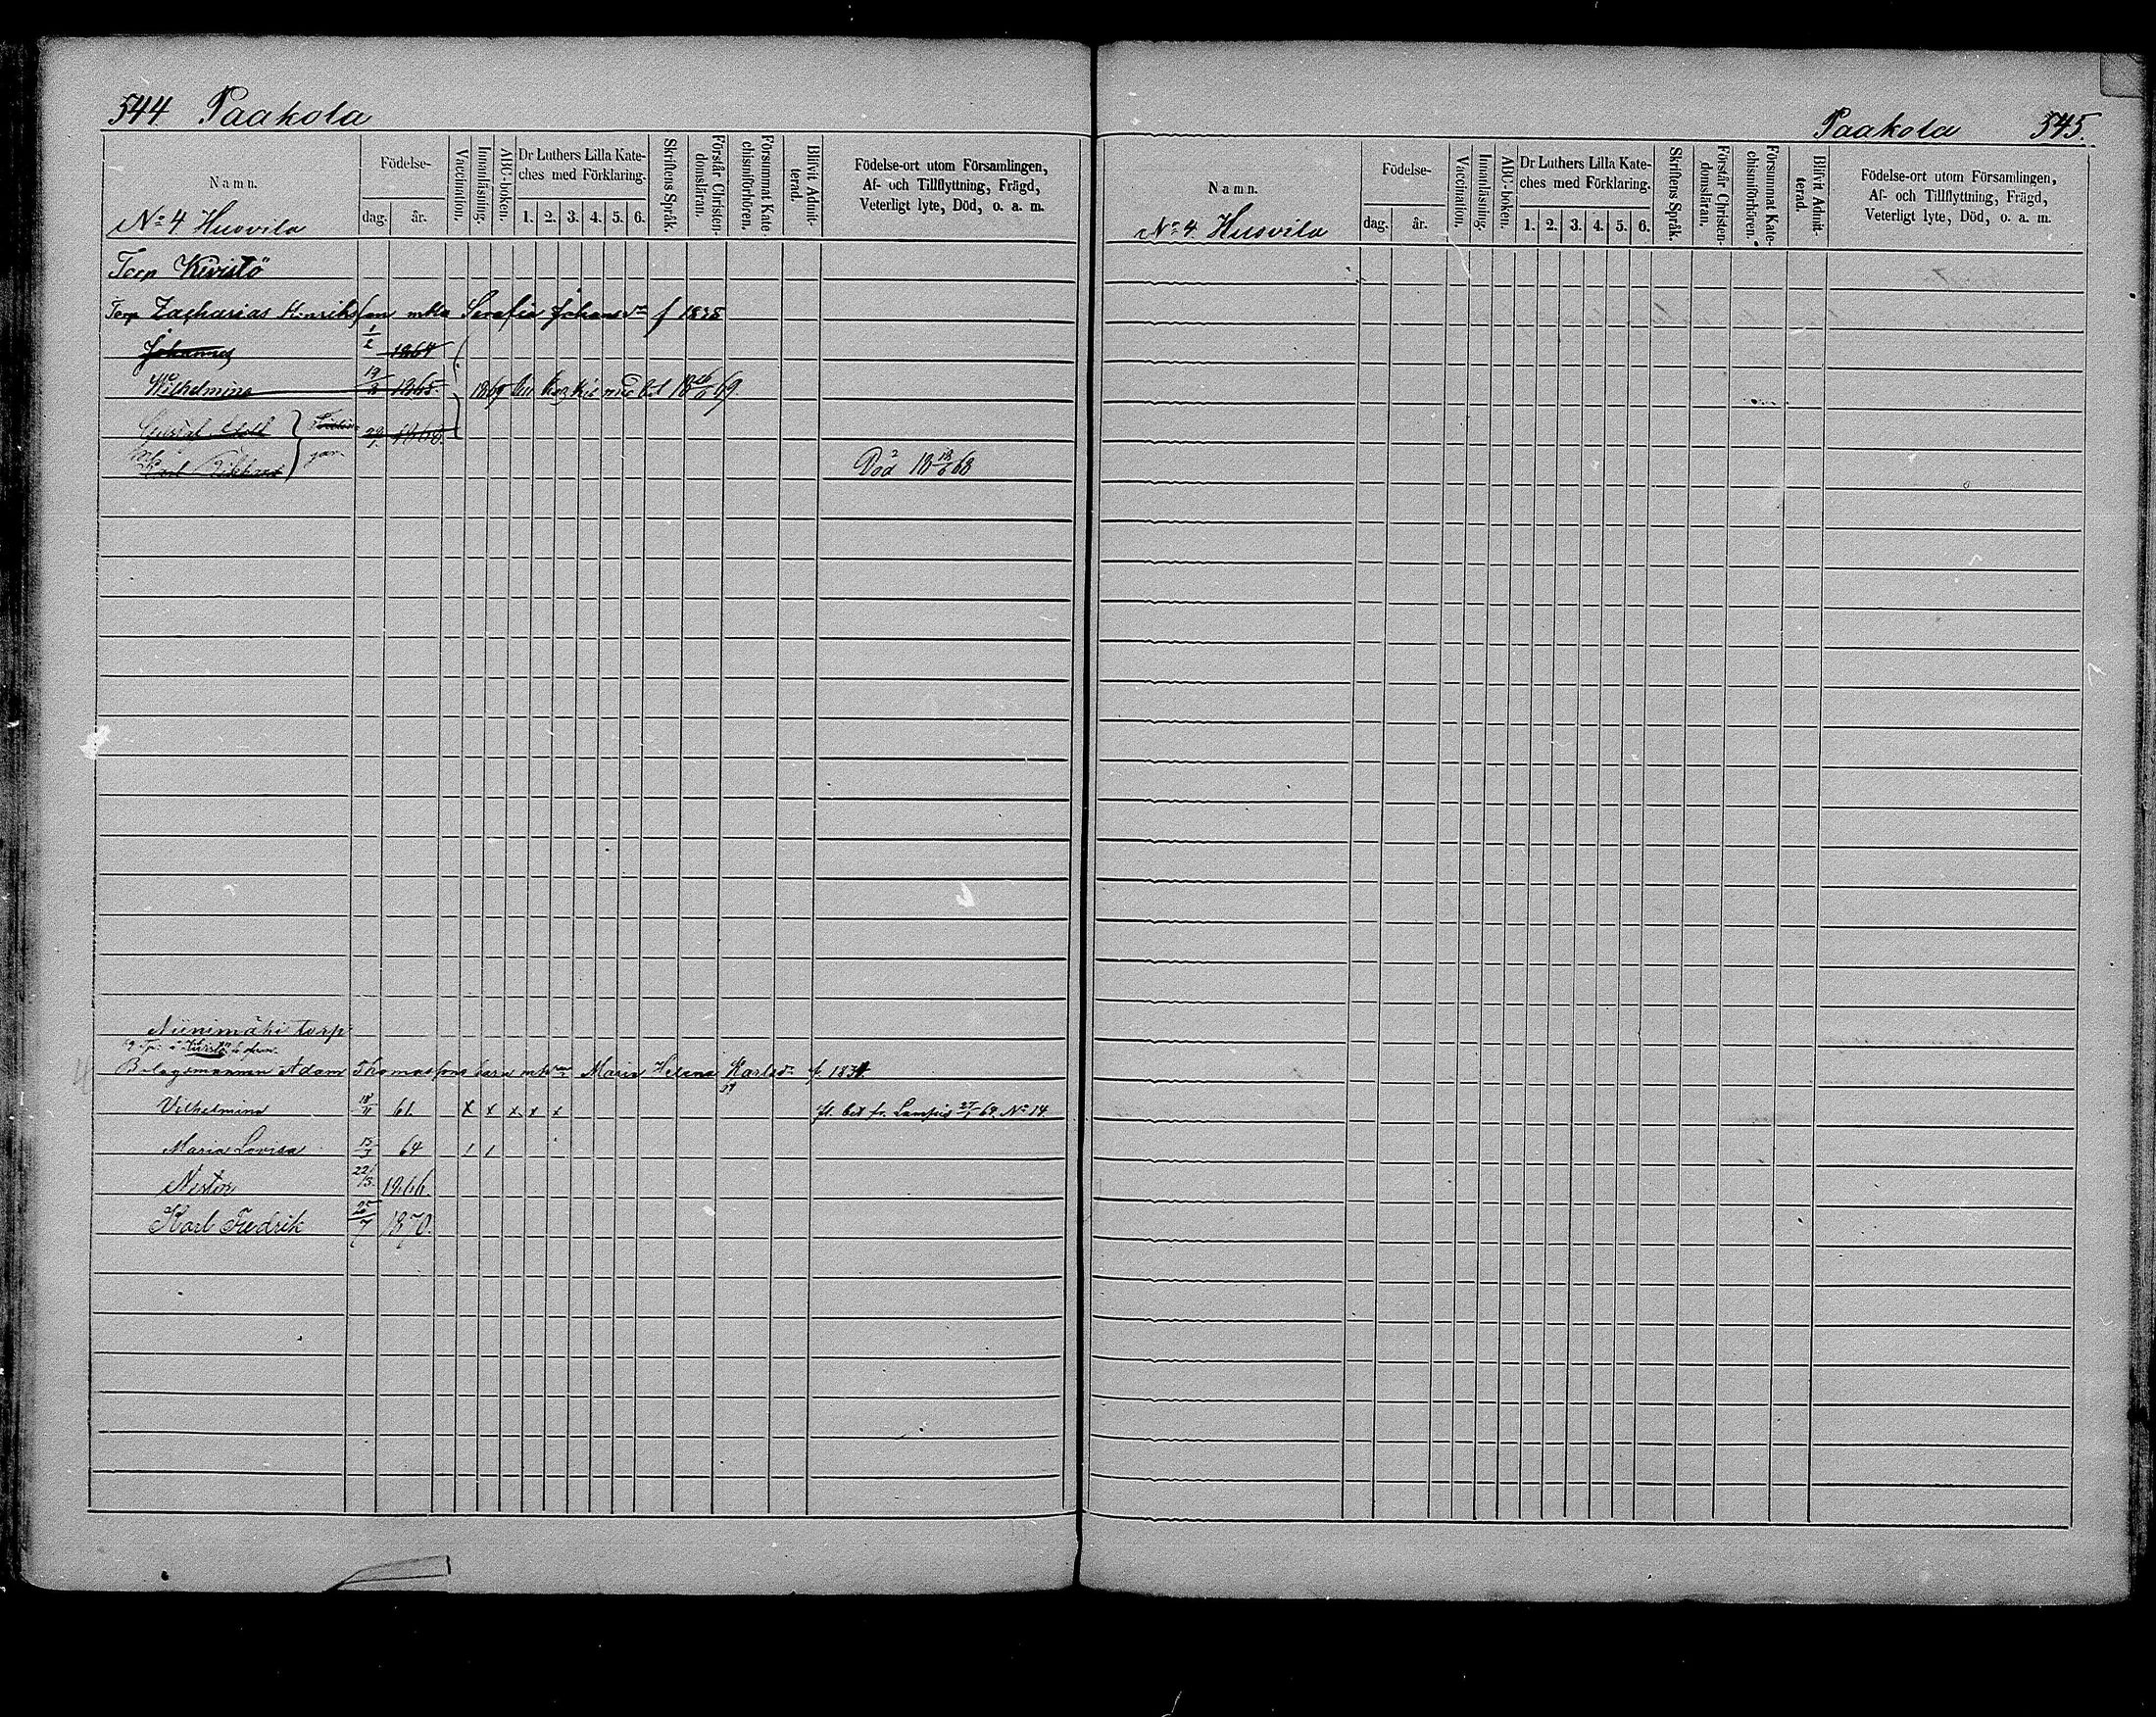 544 Paakola
Namn. Födelse- dag. år. Vaccination. Innanläsning. ABC-boken. Dr Luthers Lilla Kate-ches med Förklaring. 1. 2. 3. 4. 5. 6. Skriftens Språk. Förstår Christen-domsläran. Försummat Kate-chismiförhören. Blifvit Admit-terad. Födelse-ort utom Församlingen, Af- och Tillflyttning, Frägd, Veterligt lyte, Död, o. a. m.
No 4 Husvila
Torp Kivistö
Torp Zacharias Henriksson Serafia Johansdr f 1838
Johannes 1864
Wilhelmina 1865 1869
Gustaf Adolf 1868
Karl Död 18 68
Niinimäki torp
Kivistö
Bolagsmannen Adam Thomassons barn Maria Helena Karlsdr f. 1834
Vilhelmina 18/11 61 x x x x x fl. bet fr. Lampis 27/1 69. No 14
Maria Lovisa 15/3 64 / /
Nestor 22/3 1866.
Karl Fredrik 25/7 1870.
Paakola 545.
Namn. Födelse- dag. år. Vaccination. Innanläsning. ABC-boken. Dr Luthers Lilla Kate-ches med Förklaring. 1. 2. 3. 4. 5. 6. Skriftens Språk. Förstår Christen-domsläran. Försummat Kate-chismiförhören. Blifvit Admit-terad. Födelse-ort utom Församlingen, Af- och Tillflyttning, Frägd, Veterligt lyte, Död, o. a. m.
No 4. Husvila